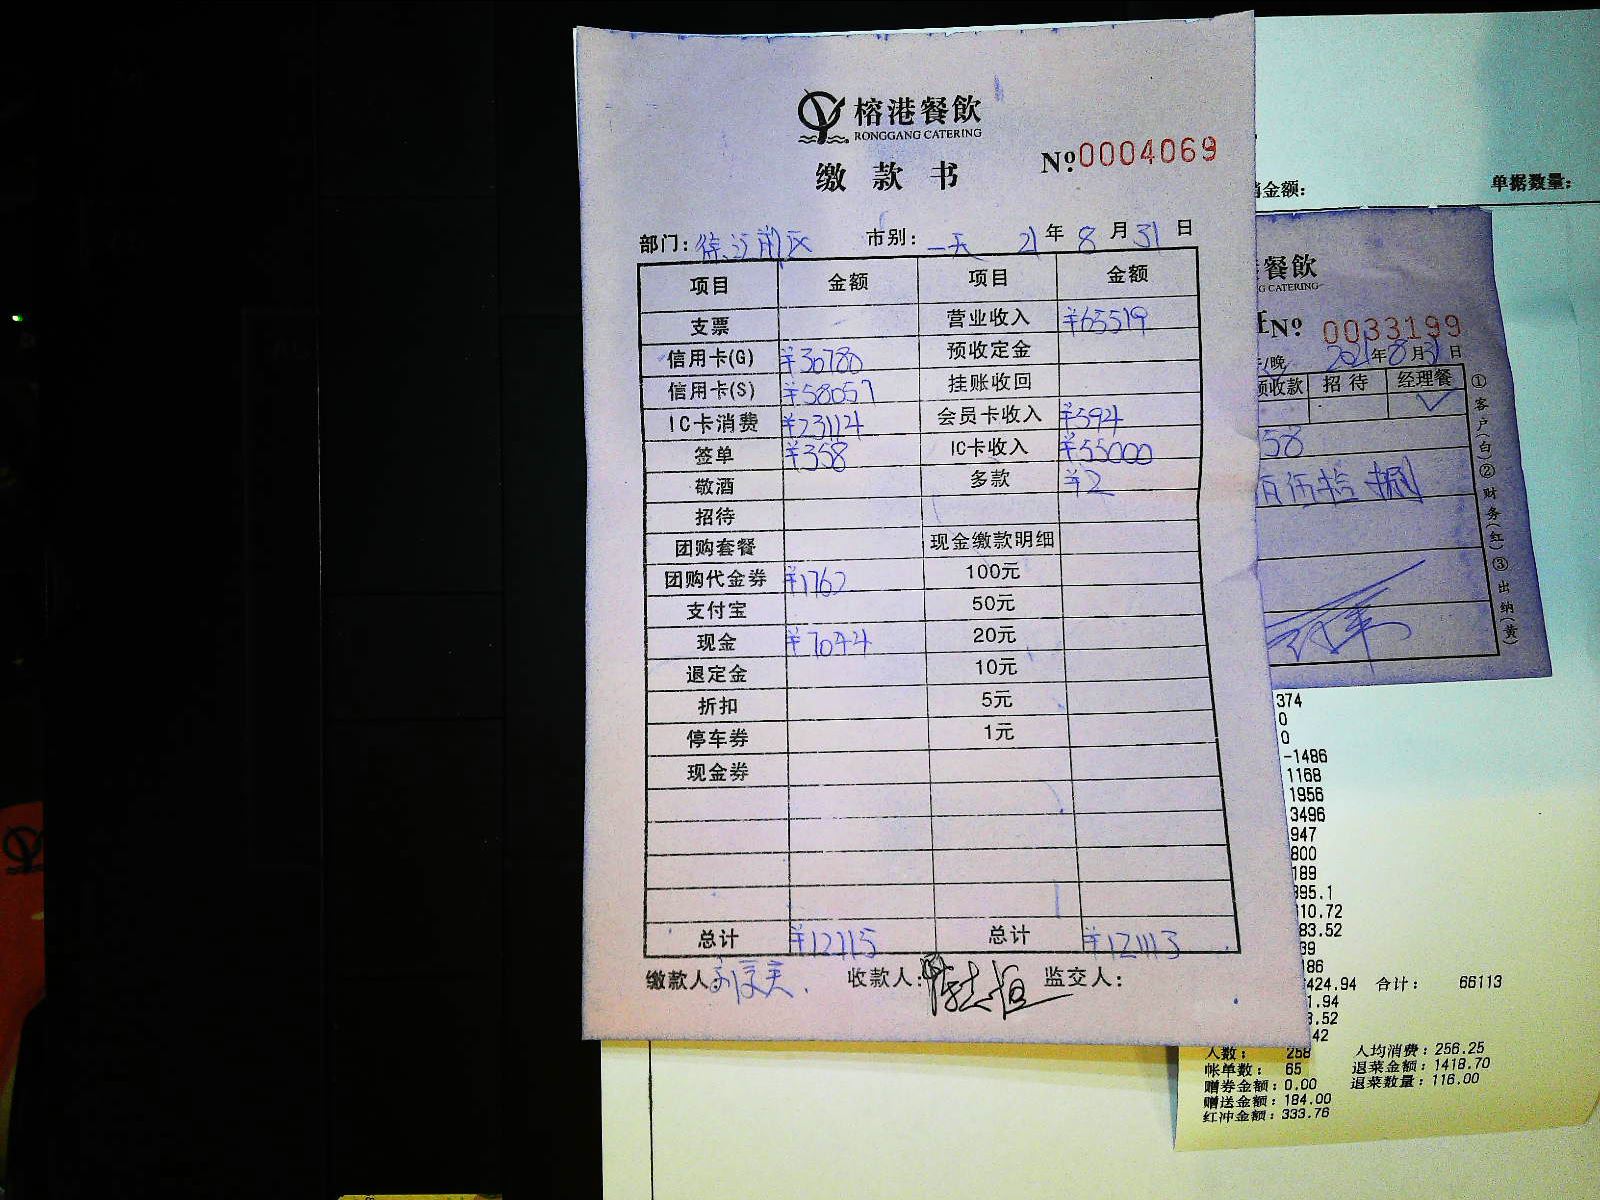 榕港餐飲
RONGGANG CATERING
缴款书
№0004069
部门: 前区 市别: 一天 21年8月31日
项目 金额 项目 金额
支票 营业收入 ¥65519
信用卡(G) ¥30780 预收定金
信用卡(S) ¥58057 挂账收回
IC卡消费 ¥23114 会员卡收入 ¥594
签单 ¥358 IC卡收入 ¥55000
敬酒 多款 ¥2
招待
团购套餐 现金缴款明细
团购代金券 ¥1762 100元
支付宝 50元
现金 ¥7044 20元
退定金 10元
折扣 5元
停车券 1元
现金券
总计 ¥121115 总计 ¥121115
缴款人: 收款人: 监交人:
金额: 单据数量:
餐飲
G CATERING
№ 0033199
/晚 2021年8月31日
预收款 招待 经理餐
58
佰伍拾捌
①客户(白)②财务(红)③出纳(黄)
374
0
0
-1486
1168
1956
3496
947
800
189
395.1
10.72
83.52
39
186
424.94 合计: 66113
1.94
3.52
42
人数: 258 人均消费:256.25
帐单数: 65 退菜金额:1418.70
赠券金额:0.00 退菜数量:116.00
赠送金额:184.00
红冲金额:333.76